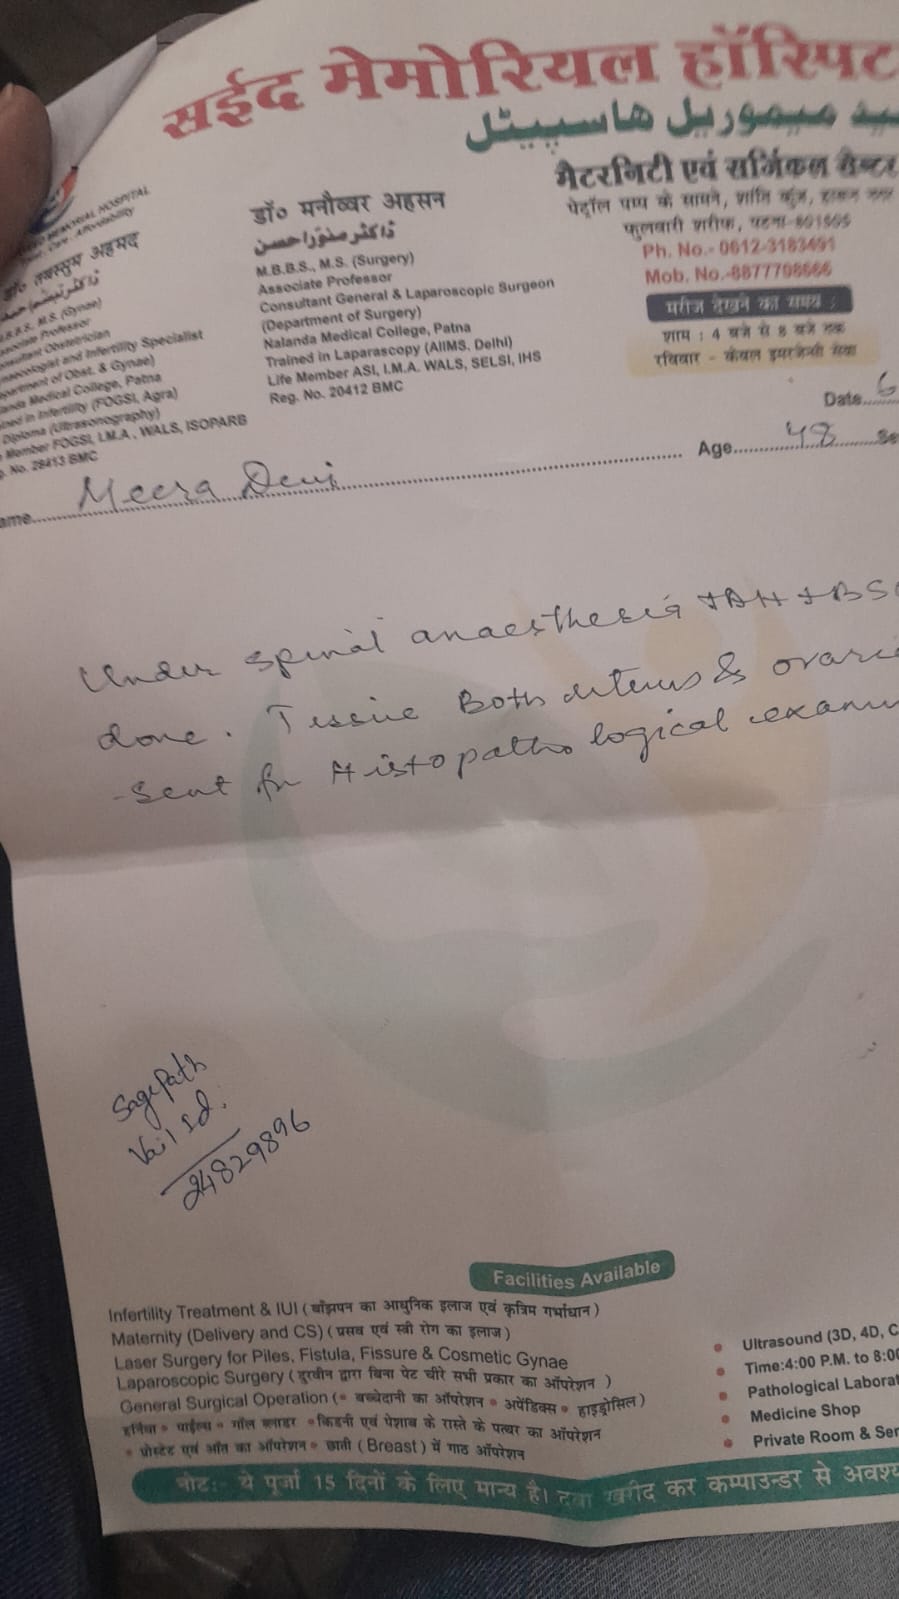 सईद मेमोरियल हॉस्पिट
میموریل ہاسپیٹل
मैटरनिटी एवं सर्जिकल सेन्टर
पेट्रोल पम्प के सामने, शांति कुंज, हारून नगर
फुलवारी शरीफ, पटना-801505
Ph. No.- 0612-3183491
Mob. No.-8877708666
मरीज देखने का समय :
शाम : 4 बजे से 8 बजे तक
रविवार - केवल इमरजेन्सी सेवा
MEMORIAL HOSPITAL
Care . Affordability
डॉ० तबस्सुम अहमद
M.S. (Gynae)
Associate Professor
Consultant Obstetrician
and Infertility Specialist
(Department of Obst. & Gynae)
Medical College, Patna
in Infertility (FOGSI, Agra)
Diploma (Ultrasonography)
Member FOGSI, I.M.A , WALS, ISOPARB
No. 28413 BMC
डॉ० मनौव्वर अहसन
ڈاکٹر منور احسن
M.B.B.S., M.S. (Surgery)
Associate Professor
Consultant General & Laparoscopic Surgeon
(Department of Surgery)
Nalanda Medical College, Patna
Trained in Laparascopy (AIIMS, Delhi)
Life Member ASI, I.M.A. WALS, SELSI, IHS
Reg. No. 20412 BMC
Date 6
ame Meera Devi Age 48 Se
Under spinal anaesthesia TAH + BS
done. Tissue Both uterus & ovari
sent for Histopathological exam
Sagepath
Vail Id.
24829896
Facilities Available
Infertility Treatment & IUI ( बाँझपन का आधुनिक इलाज एवं कृत्रिम गर्भाधान )
Maternity (Delivery and CS) ( प्रसव एवं स्त्री रोग का इलाज )
Laser Surgery for Piles, Fistula, Fissure & Cosmetic Gynae
Laparoscopic Surgery ( दुरबीन द्वारा बिना पेट चीरे सभी प्रकार का ऑपरेशन )
General Surgical Operation (• बच्चेदानी का ऑपरेशन • अपेंडिक्स • हाइड्रोसिल )
हर्निया • पाईल्स • गॉल ब्लाडर • किडनी एवं पेशाब के रास्ते के पत्थर का ऑपरेशन
• प्रोस्टेट एवं आँत का ऑपरेशन • छाती (Breast) में गाठ ऑपरेशन
• Ultrasound (3D, 4D, C
• Time:4:00 P.M. to 8:00
• Pathological Laborat
• Medicine Shop
• Private Room & Ser
नोट:- ये पूर्जा 15 दिनों के लिए मान्य है। दवा खरीद कर कम्पाउन्डर से अवश्य